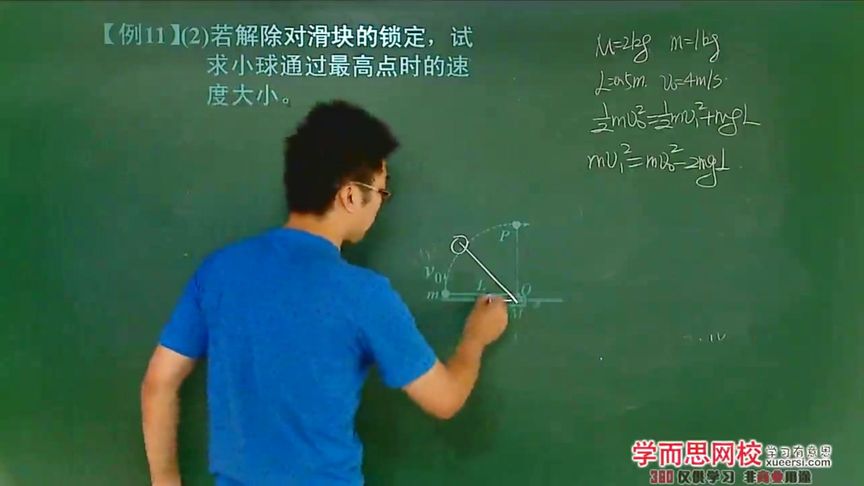 【例11】(2)若解除对滑块的锁定，试
求小球通过最高点时的速
度大小。
M=2kg m=1kg
L=0.5m. v₀=4m/s.
½mv₀²=½mv₁²+mgL
mv₁²=mv₀²-2mgL.
P
V₀
m L O
M
学而思网校 学习有意思
xueersi.com
360 仅供学习 非商业用途